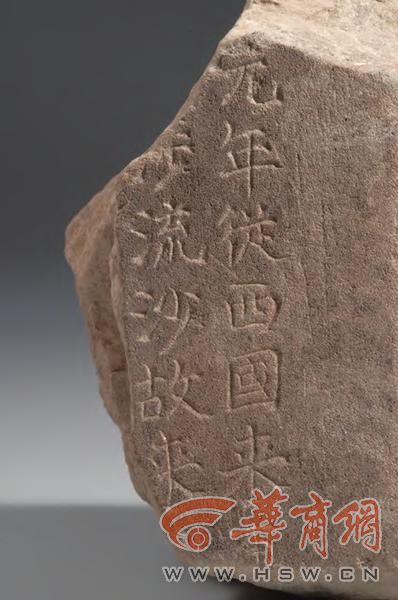 元年從西國来
涉流沙故来
華商網
WWW.HSW.CN